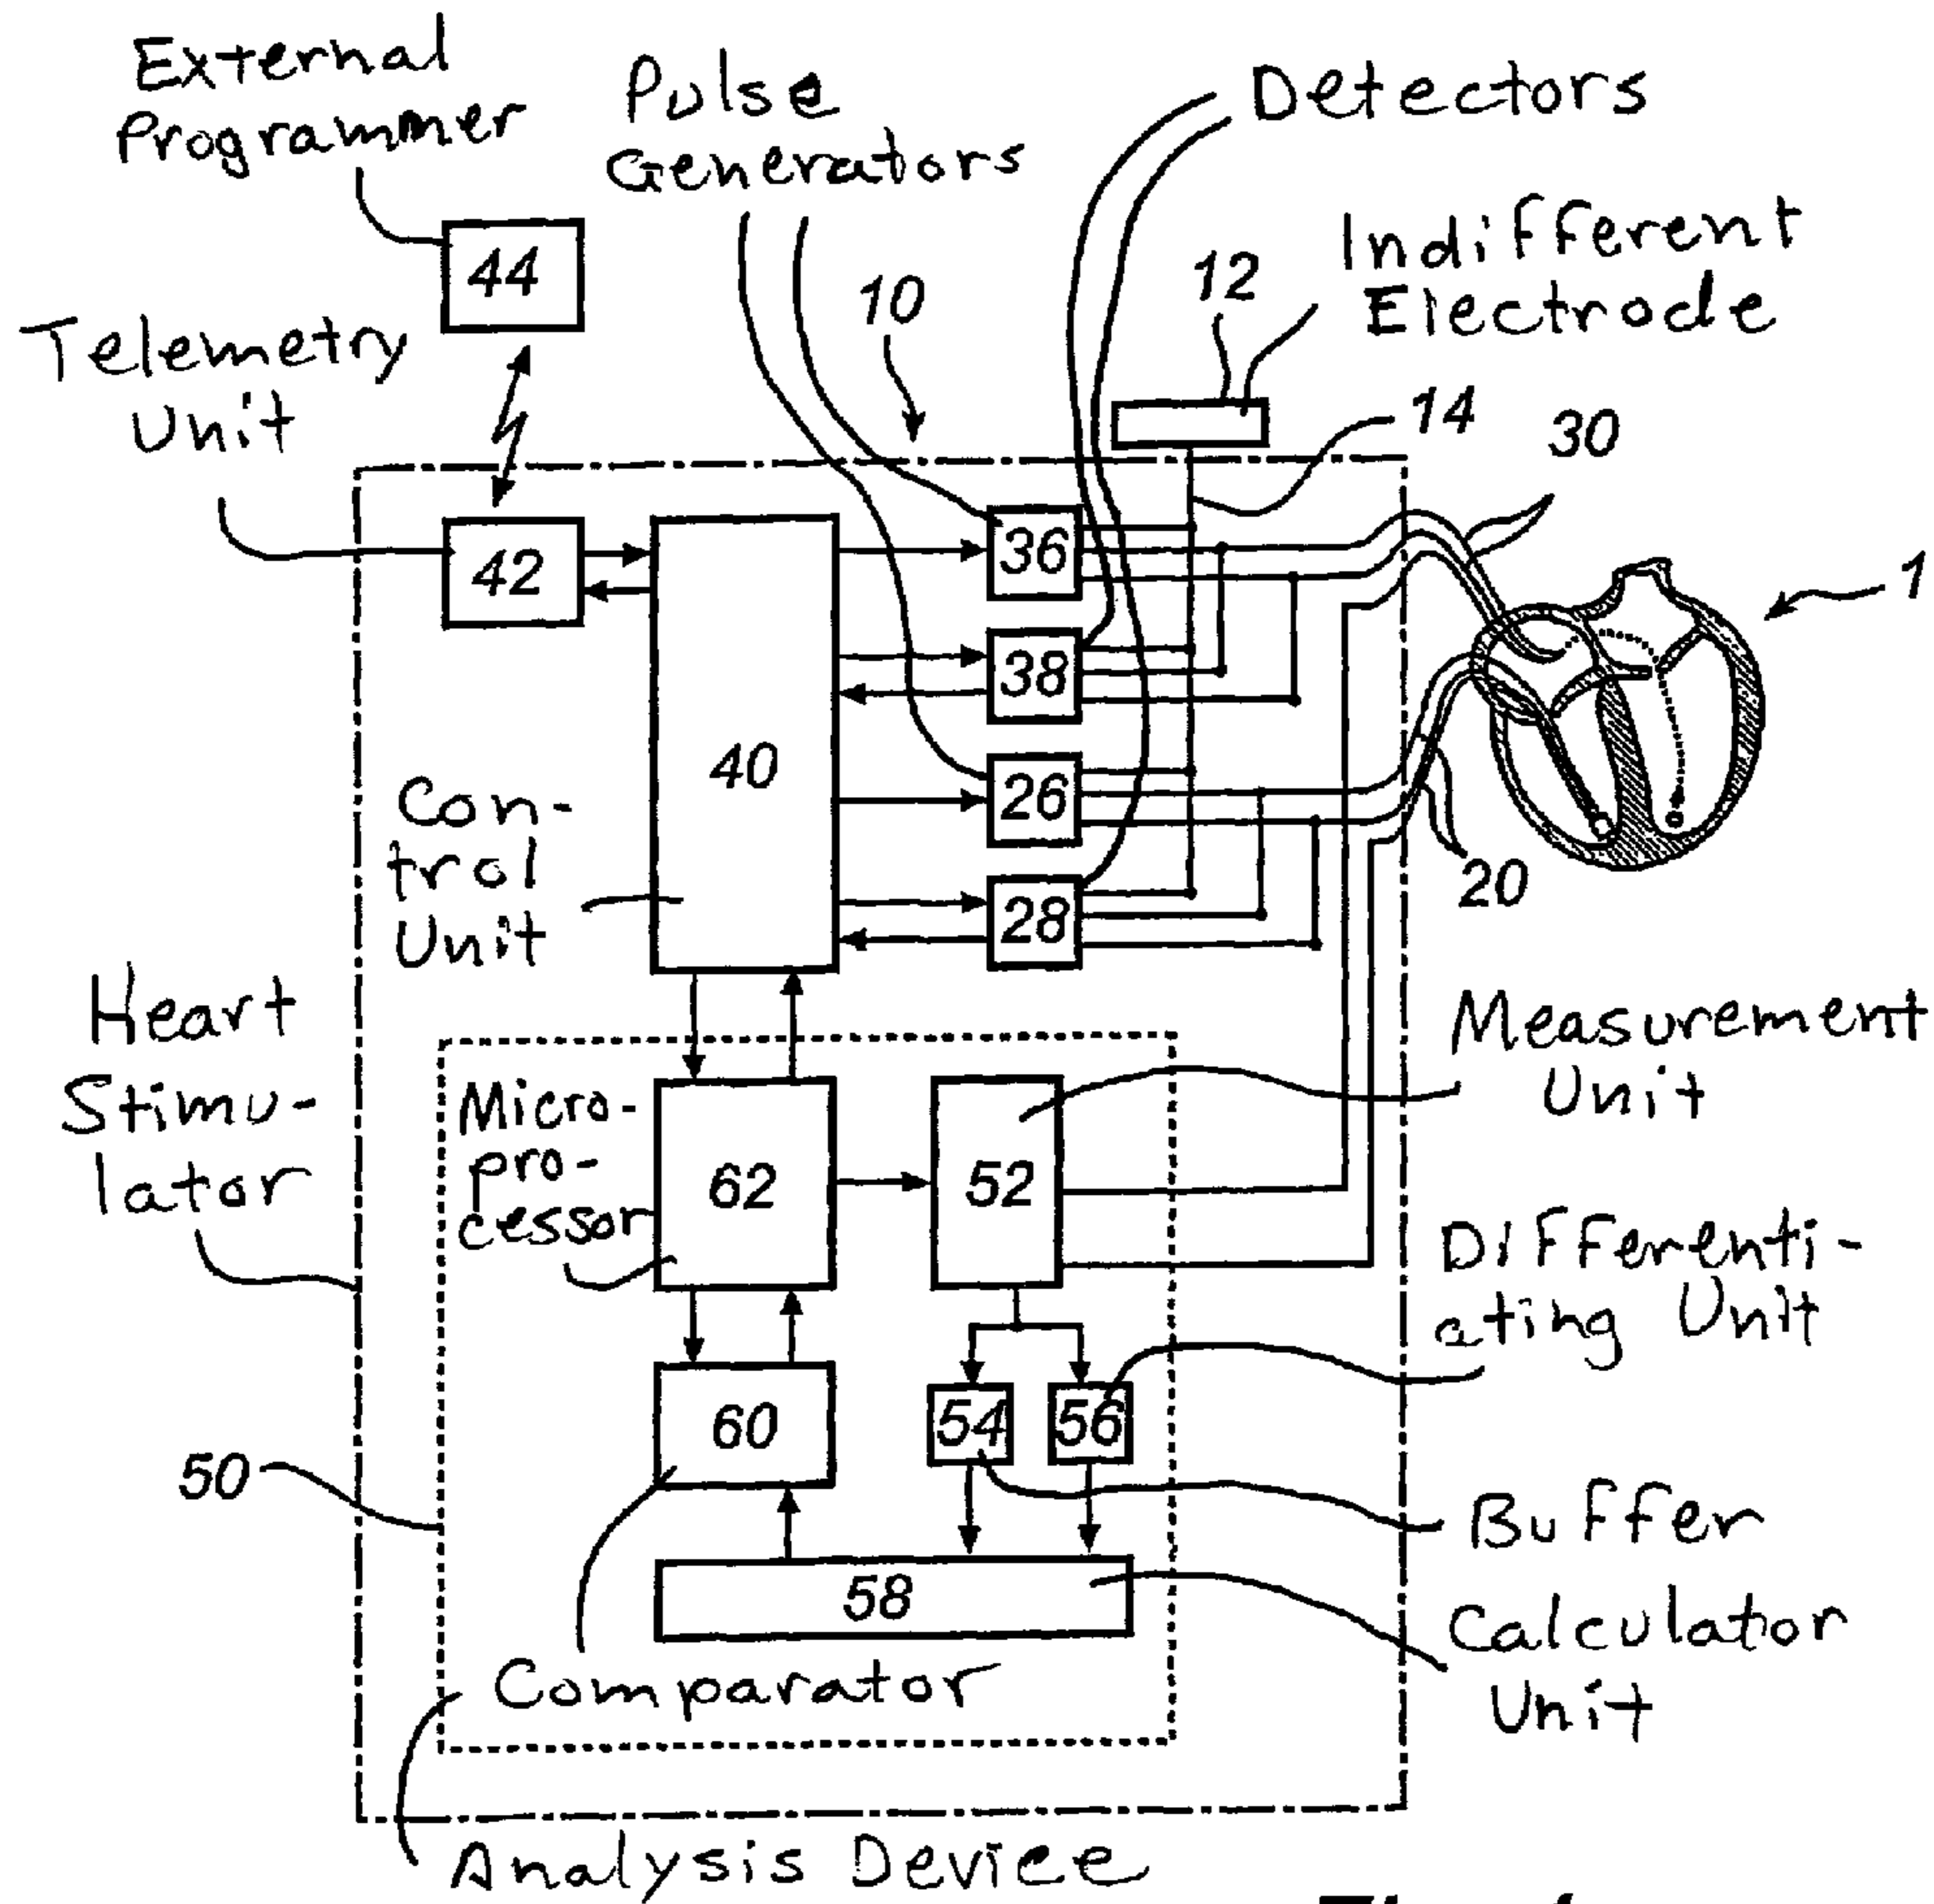 External
Programmer
Pulse
Generators
Detectors
Indifferent
Electrode
44
10
12
Telemetry
Unit
14
30
42
36
1
38
40
26
Con-
trol
Unit
28
20
Heart
Stimu-
lator
Measurement
Unit
Micro-
pro-
cessor
62
52
Differenti-
ating Unit
60
54
56
50
Buffer
58
Calculator
Unit
Comparator
Analysis Device